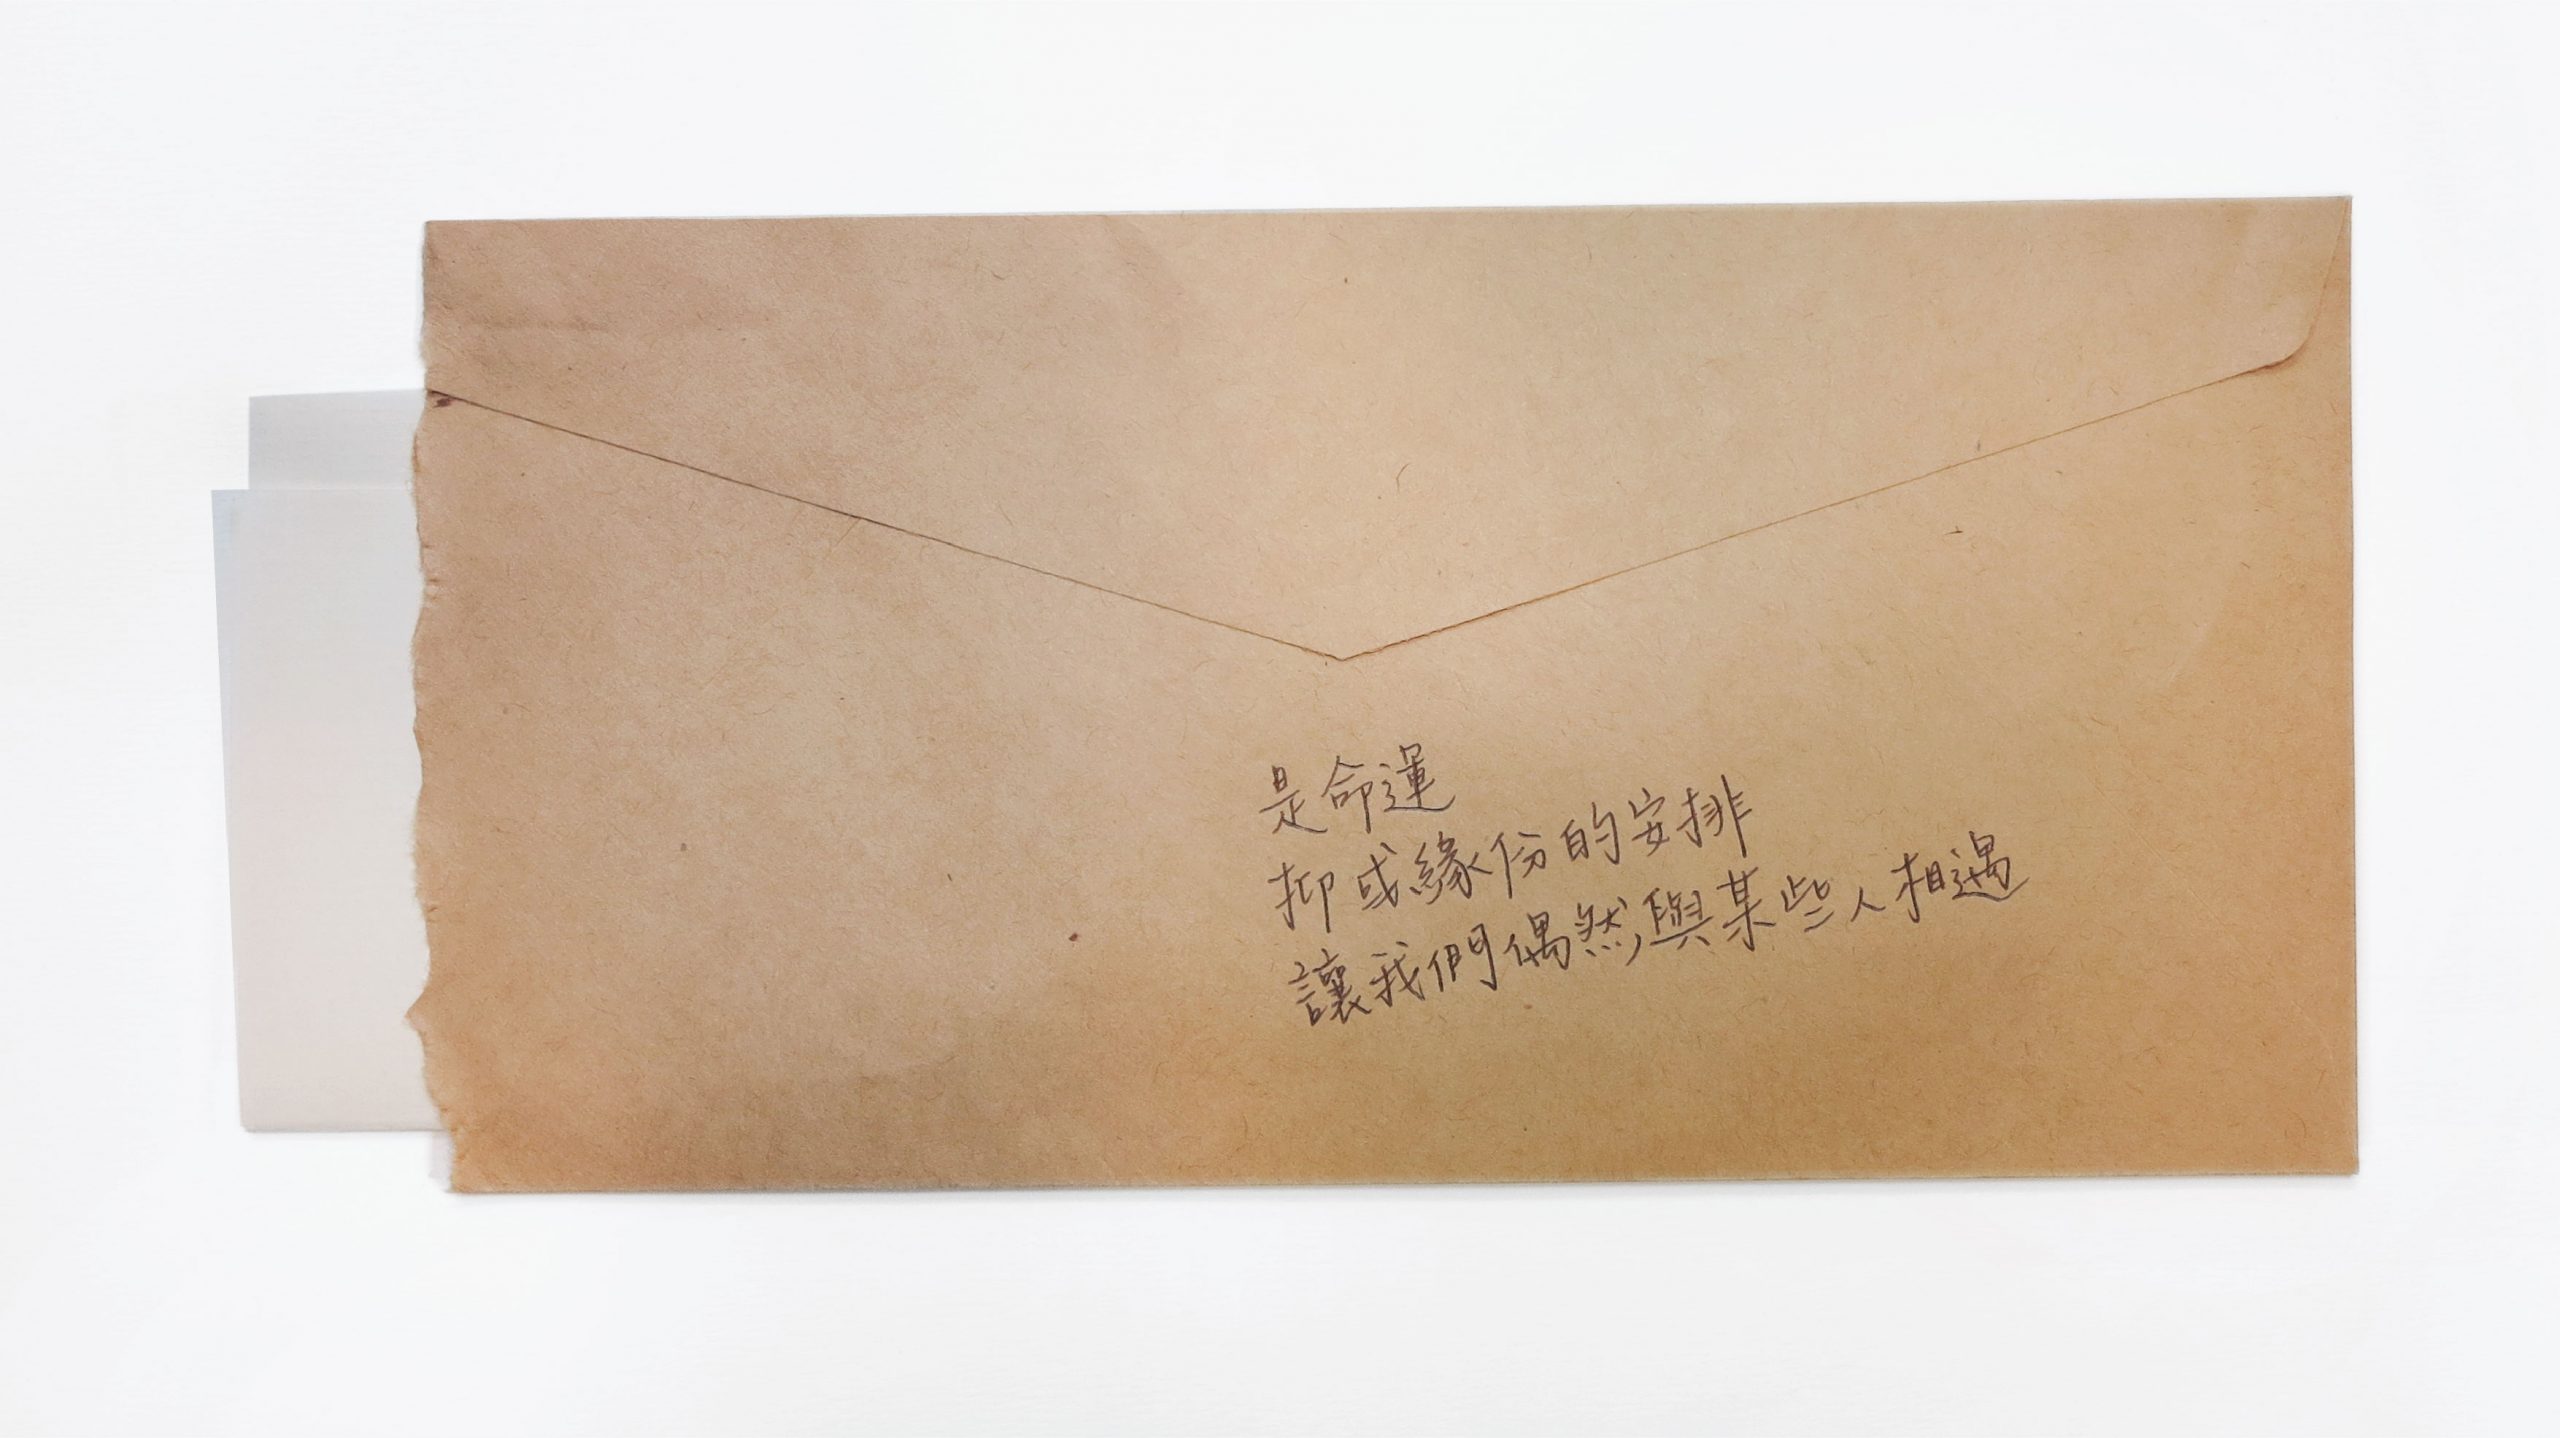 是命運
抑或緣份的安排
讓我們偶然與某些人相遇